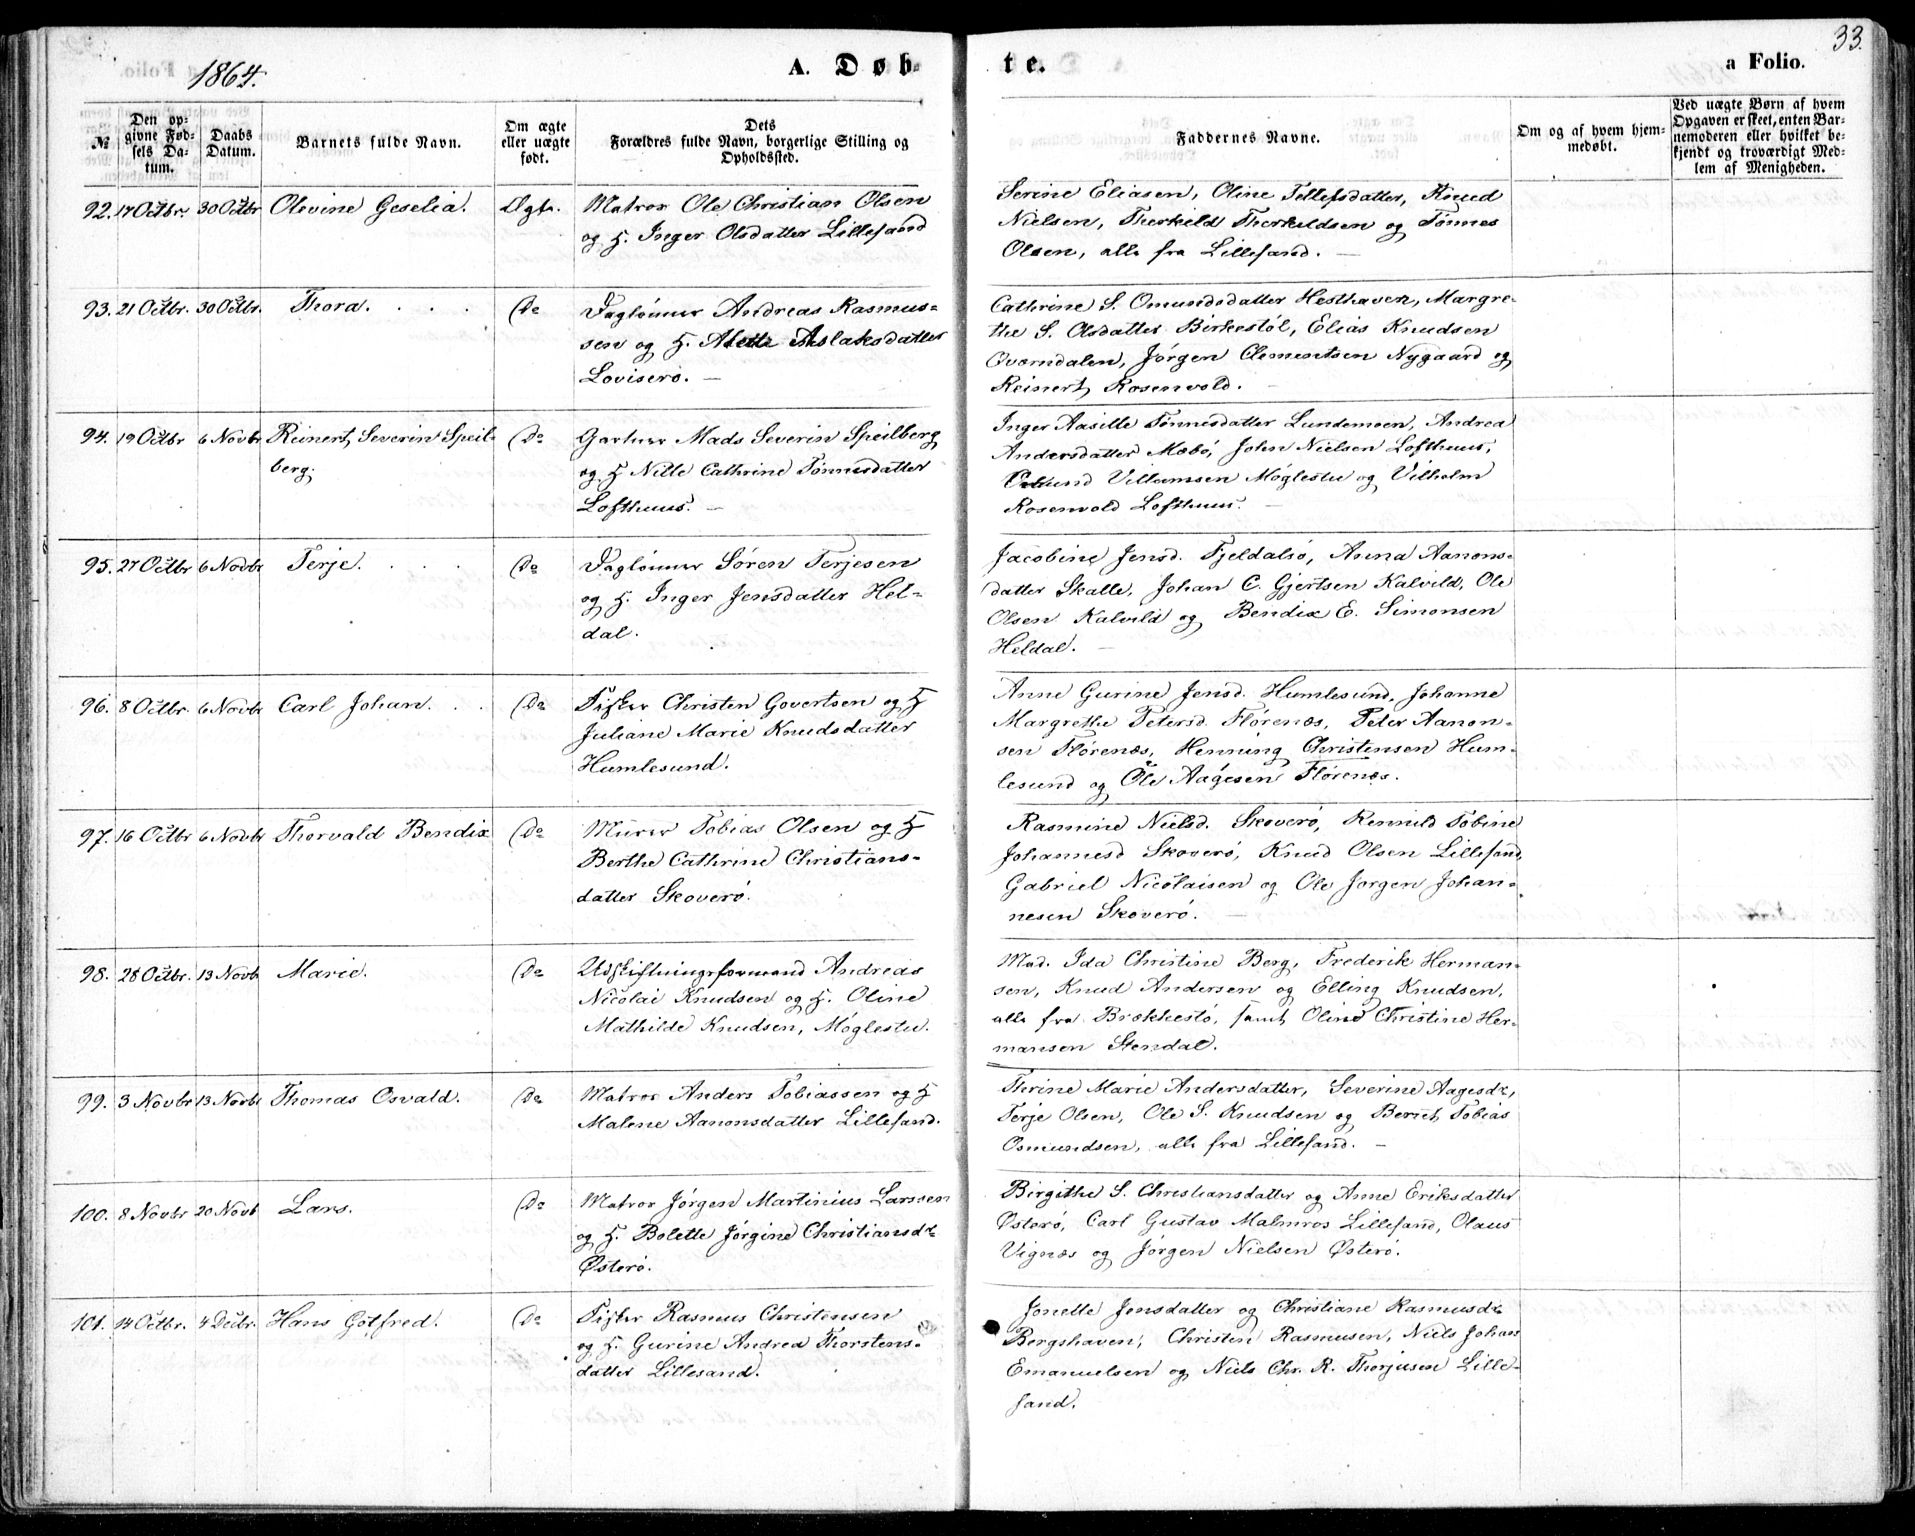 1864.
A. Døb-
te.
a Folio.
33.
№
Den op-
givne Fød-
sels Da-
tum.
Daabs
Datum.
Barnets fulde Navn.
Om ægte
eller uægte
født.
Dets
Forældres fulde Navn, borgerlige Stilling og
Opholdssted.
Faddernes Navne.
Om og af hvem hjem-
medøbt.
Ved uægte Børn af hvem
Opgaven er skeet, enten Bar-
nemoderen eller hvilket be-
kjendt og troværdigt Med-
lem af Menigheden.
92. 17 Octbr. 30 Octbr Olevine Geselia. Ægte. Matros Ole Christian Olsen
og H. Inger Olsdatter Lillesand
Serine Eliasen, Oline Tellefsdatter, Knud
Nielsen, Therkild Therkildsen og Tønnes
Olsen, alle fra Lillesand. —
93. 21 Octbr. 30 Octbr. Thora. . . . Do Daglønner Andreas Rasmus-
sen og H. Alette Aslaksdatter
Loviserø. —
Cathrine S. Omundsdatter Hesthaven, Margre-
the S. Olsdatter Birkestøl, Elias Knudsen
Qværndalen, Jørgen Clementsen Nygaard og
Reinert Rosenvold. —
94. 19 Octbr 6 Novbr Reinert Severin Speil-
berg.
Do Gartner Mads Severin Speilberg
og H Nille Cathrine Tønnesdatter
Lofthuus. —
Inger Aasille Tønnesdatter Lundemoen, Andrea
Andersdatter Mæbø, John Nielsen Lofthuus,
Villumsen Møglestu og Vilhelm
Rosenvold Lofthuus. —
95. 27 Octbr 6 Novbr Terje. . . . Do Daglønner Søren Terjesen
og H. Inger Jensdatter Hel-
dal.
Jacobine Jensd. Tjeldalsø, Anna Aanons-
datter Skalle, Johan C. Gjertsen Kalvild, Ole
Olsen Kalvild og Bendix E. Simonsen
Heldal. —
96. 8 Octbr. 6 Novbr Carl Johan. . . Do Fisker Christen Govertsen og H
Juliane Marie Knudsdatter
Humlesund.
Anne Gurine Jensd. Humlesund, Johanne
Margrethe Petersd. Flørenæs, Peter Aanon-
sen Flørenæs, Henning Christensen Hum-
lesund og Ole Aagesen Flørenæs.
97. 16 Octbr 6 Novbr Thorvald Bendix Do Murer Tobias Olsen og H
Berthe Cathrine Christians-
datter Skoverø.
Rasmine Nielsd. Skoverø, Tobine
Johannesd Skoverø, Knud Olsen Lillesand,
Gabriel Nicolaisen og Ole Jørgen Johan-
nesen Skoverø. —
98. 28 Octbr. 13 Novb Marie. Do Udskiftningsformand Andreas
Nicolai Knudsen og H. Oline
Mathilde Knudsen, Møglestu.
Mad. Ida Christine Berg, Frederik Herman-
sen, Knud Andersen og Elling Knudsen,
alle fra Brækkestø, samt Oline Christine Her-
mansen Stendal.
99. 3 Novbr 13 Novbr Thomas Osvald. Do Matros Anders Tobiassen og H
Malene Aanonsdatter Lillesand.
Thrine Marie Andersdatter, Severine Aagesdr,
Terje Olsen, Ole S. Knudsen og Tobias
Osmundsen, alle fra Lillesand. —
100. 8 Novbr 20 Novb Lars. Do Matros Jørgen Martinius Larssen
og H. Bolette Jørgine Christiansdr
Østerø.
Birgithe S. Christiansdatter og Anne Eriksdatter
Østerø, Carl Gustav Malmros Lillesand, Olaus
Vignæs og Jørgen Nielsen Østerø.
101. 14 Octbr. 4 Decbr. Hans Gotfred. Do Fisker Rasmus Christensen
og H. Gurine Andrea Thorstens-
datter Lillesand.
Jonette Jensdatter og Christiane Rasmusdr
Bergshaven, Christen Rasmusen, Niels Johan
Emanuelsen og Niels Chr. R. Thorjusen Lille-
sand.